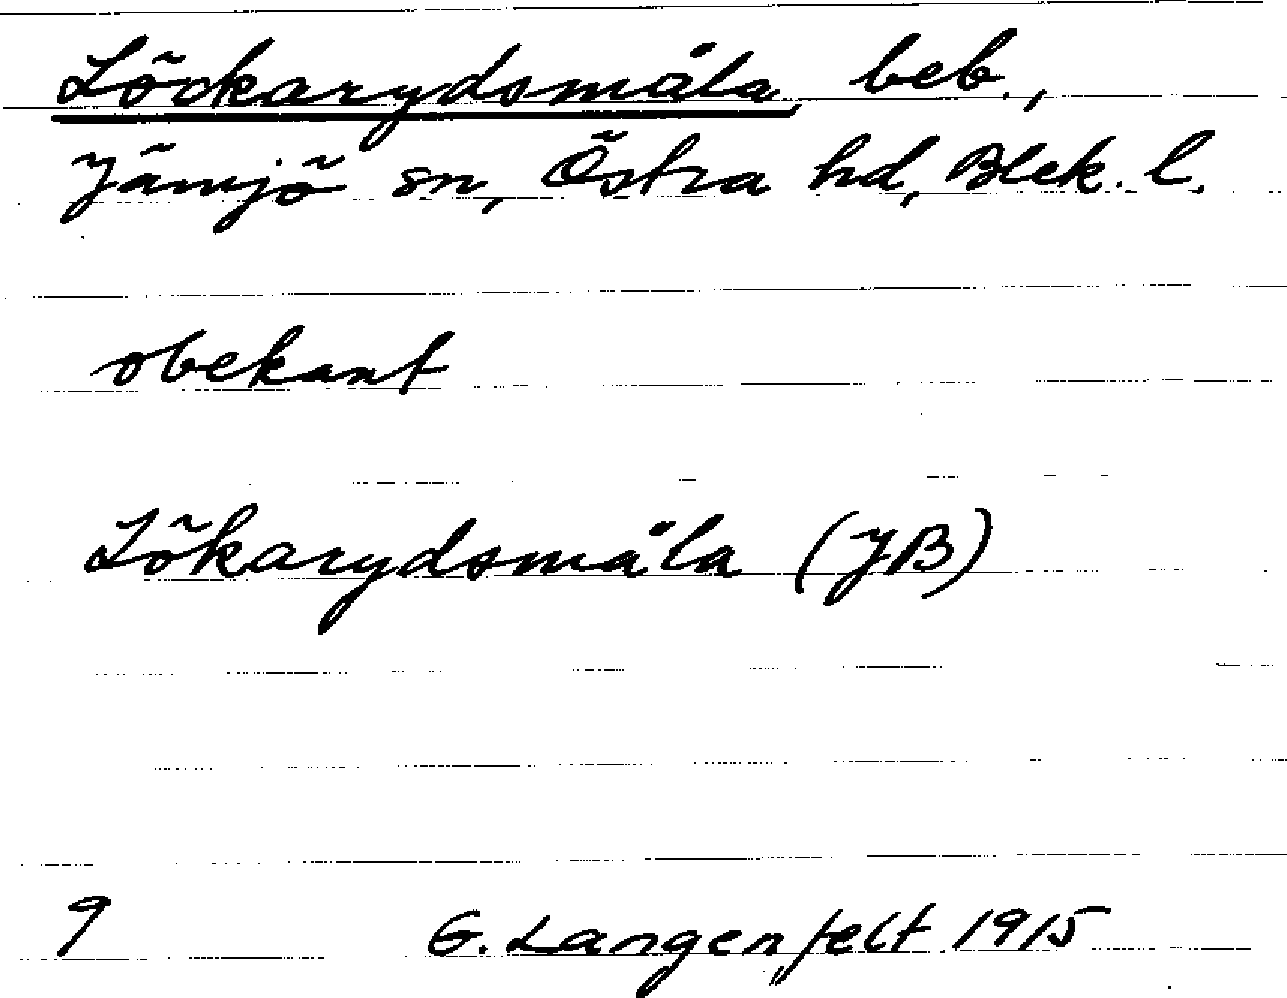 Löckarydsmåla, beb.,
Jämjö sn, Östra hd, Blek. l.
obekant
Lökarydsmåla (JB)
9 G. Langenfelt 1915